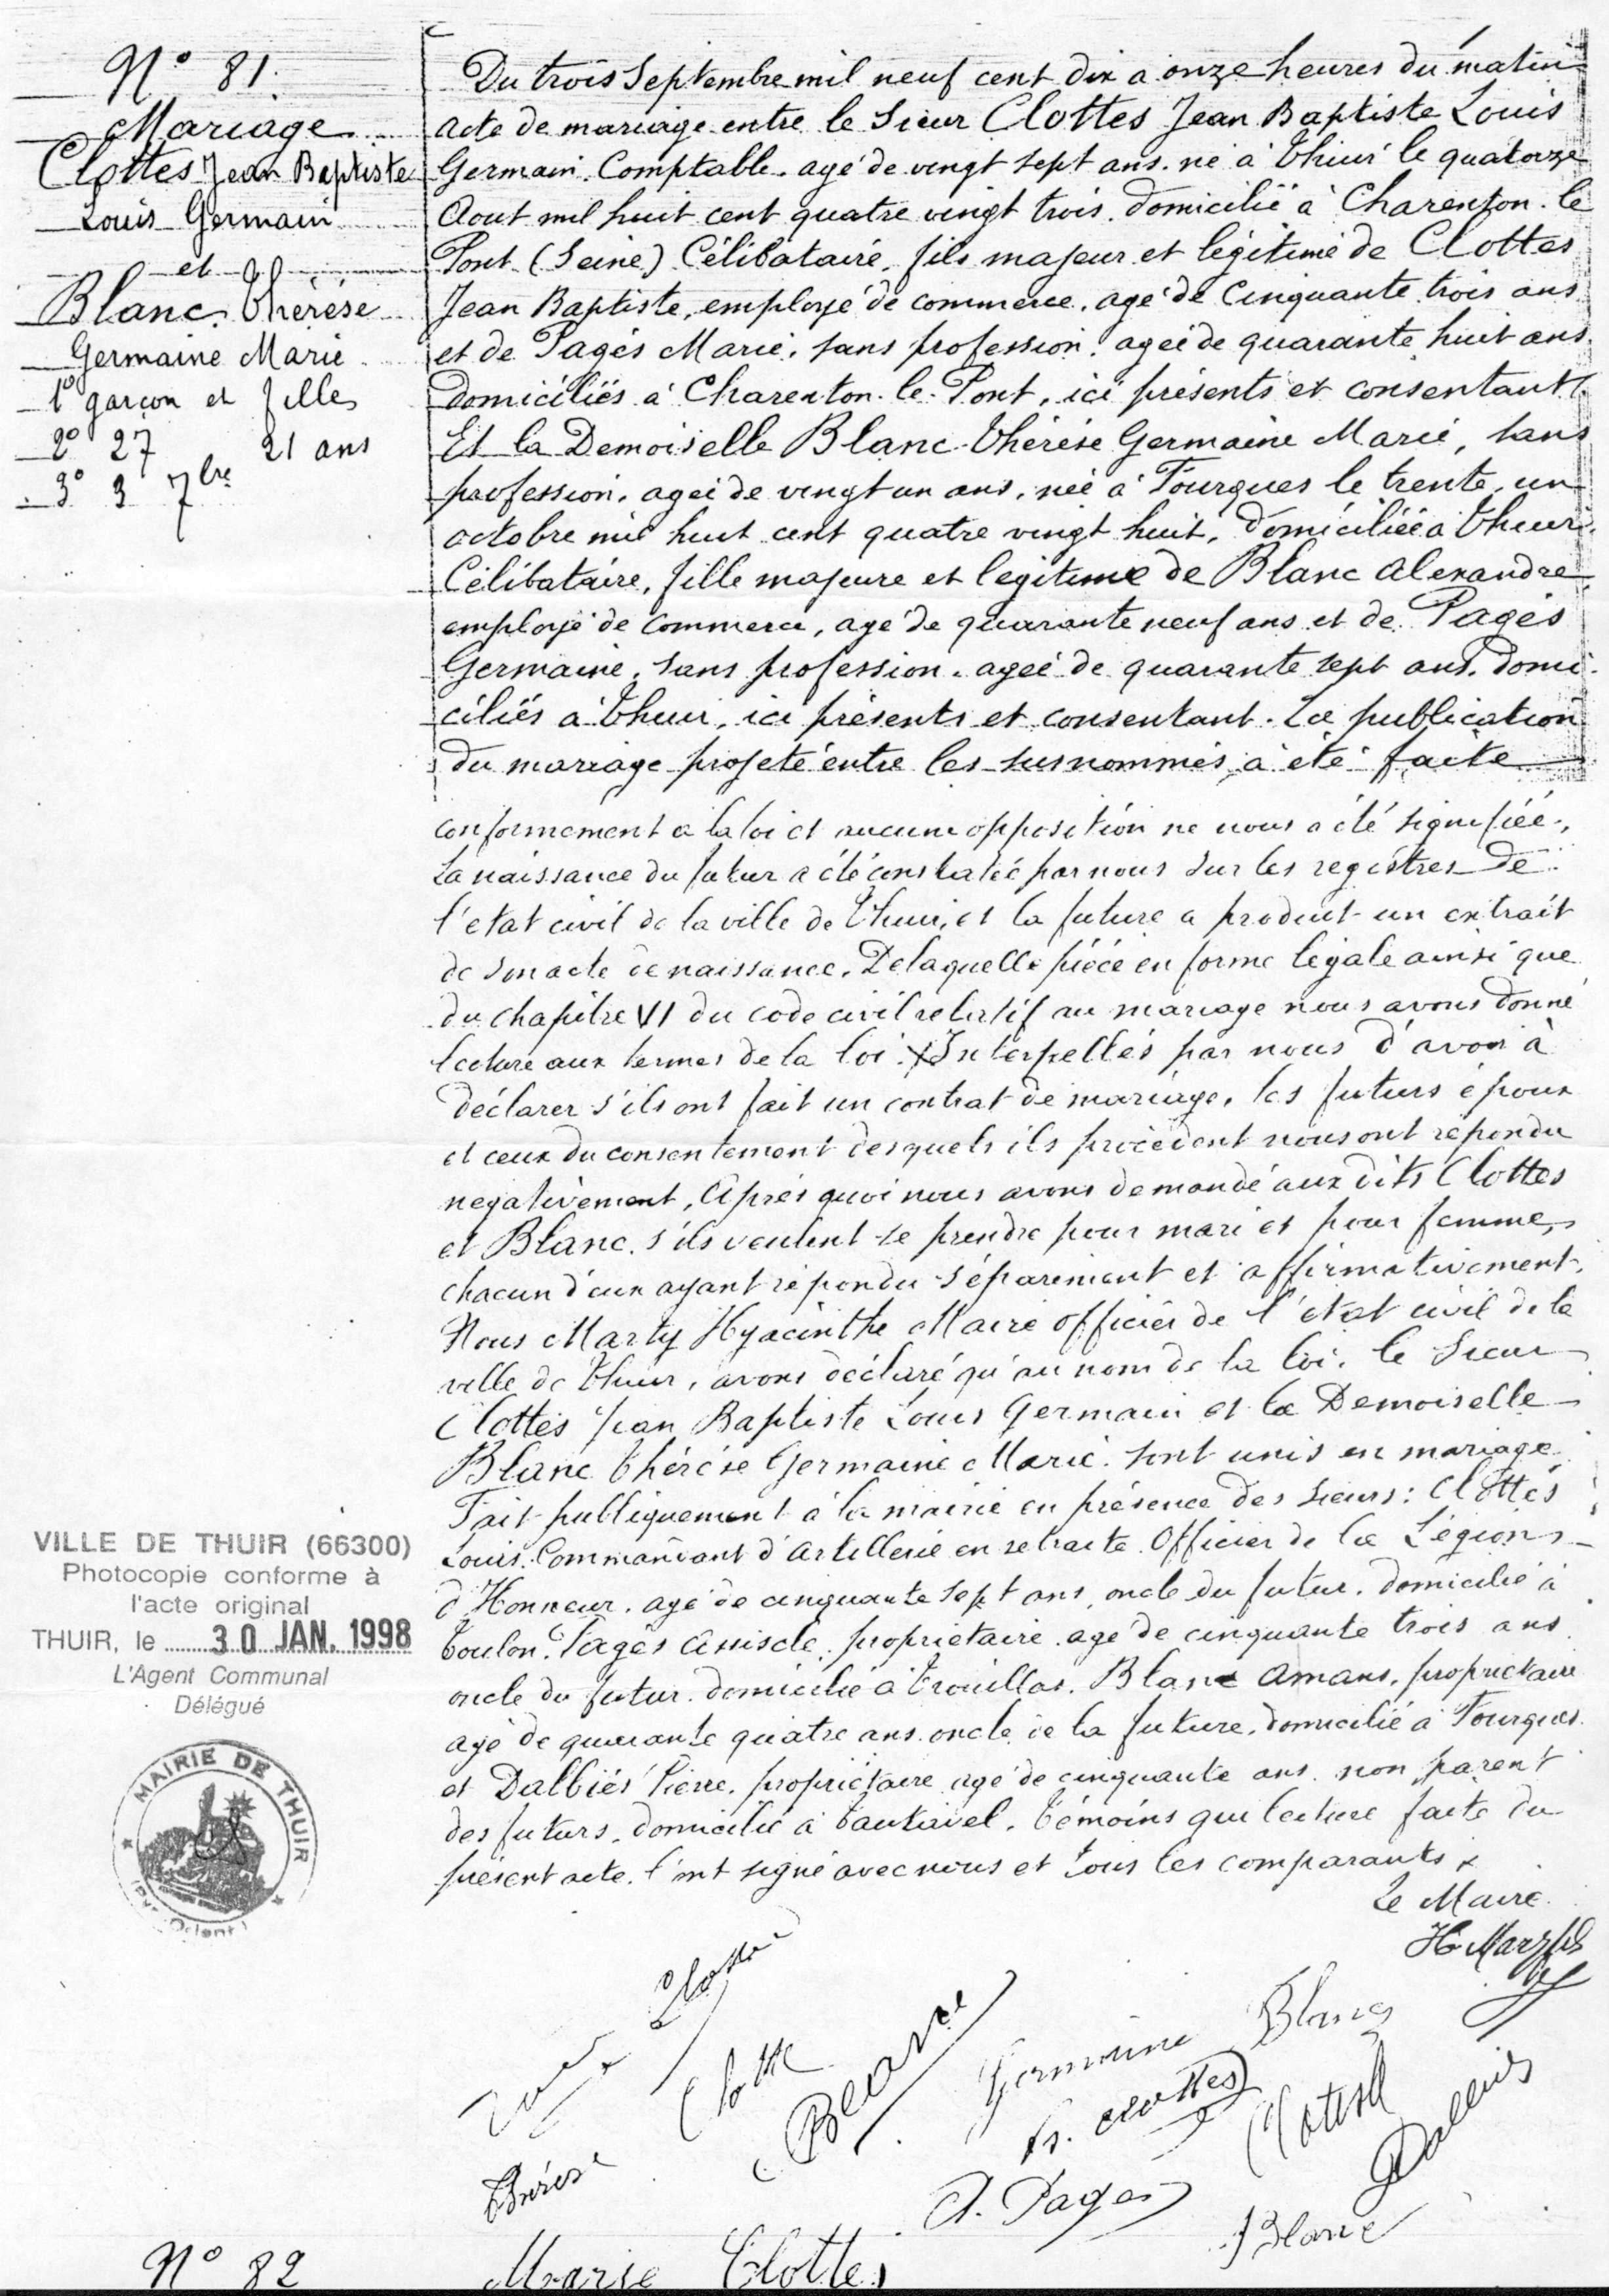 N° 81.
Mariage
Clottes Jean Baptiste
Louis Germain
et
Blanc Thérèse
Germaine Marie
1° garçon et fille
2° 27 21 ans
3° 3 7bre
Du trois Septembre mil neuf cent dix a onze heures du matin
acte de mariage entre le Sieur Clottes Jean Baptiste Louis
Germain. Comptable. agé de vingt sept ans. né à Thuir le quatorze
Aout mil huit cent quatre vingt trois. domicilié à Charenton. le
Pont (Seine) Célibataire, fils majeur et légitime de Clottes
Jean Baptiste, employé de commerce. agé de Cinquante trois ans
et de Pagès Marie, sans profession. ageé de quarante huit ans.
Domiciliés à Charenton. le. Pont, ici présents et consentant.
Et la Demoiselle Blanc Thérèse Germaine Marie, sans
profession. ageé de vingt un ans, née à Fourques le trente un
octobre mil huit cent quatre vingt huit, domiciliée à Thuir.
Célibataire, fille majeure et legitime de Blanc Alexandre
employé de commerce, agé de quarante neuf ans et de Pagès
Germaine, sans profession. ageé de quarante sept ans. domi-
ciliés à Thuir, ici présents et consentant. La publication
du mariage projeté entre les susnommés a été faite
conformement a la loi et aucune opposition ne nous a été signifiée.
La naissance du futur a été constatée par nous sur les registres de
l'etat civil de la ville de Thuir, et la future a produit un extrait
de son acte de naissance. De laquelle pièce en forme légale ainsi que
du chapitre VI du code civil relatif au mariage nous avons donné
lecture aux termes de la loi. Interpellés par nous d'avoir à
déclarer s'ils ont fait un contrat de mariage, les futurs époux
et ceux du consentement desquels ils procèdent nous ont répondu
negativement, Après quoi nous avons demandé aux dits Clottes
et Blanc. s'ils veulent se prendre pour mari et pour femme,
chacun d'eux ayant répondu séparément et affirmativement.
Nous Marty Hyacinthe Maire officier de l'état civil de la
ville de Thuir, avons déclaré qu'au nom de la loi, le Sieur
Clottes Jean Baptiste Louis Germain et la Demoiselle
Blanc Thérèse Germaine Marie. sont unis en mariage.
Fait publiquement à la mairie en présence des sieurs: Clottes
Louis. Commandant d'artillerie en retraite Officier de la Légion
d'Honneur. agé de cinquante sept ans, oncle du futur. domicilié à
Toulon. Pagès Aciscle. propriétaire. agé de cinquante trois ans
oncle du futur. domicilié à Trouillas. Blanc Amans. propriétaire
agé de quarante quatre ans. oncle de la future. domicilié à Fourques.
et Dalbiès Pierre. propriétaire agé de cinquante ans. non parent
des futurs. domicilié à Tautavel. Témoins qui lecture faite du
présent acte. l'ont signé avec nous et tous les comparants.
Le Maire
H Marty
VILLE DE THUIR (66300)
Photocopie conforme à
l'acte original
THUIR, le 30 JAN. 1998
L'Agent Communal
Délégué
MAIRIE DE THUIR
Clottes
Blanc
Germaine Blanc
Clottes
A. Pagès
Dalbiès
Thérèse
Blanc
Marie Clottes
N° 82